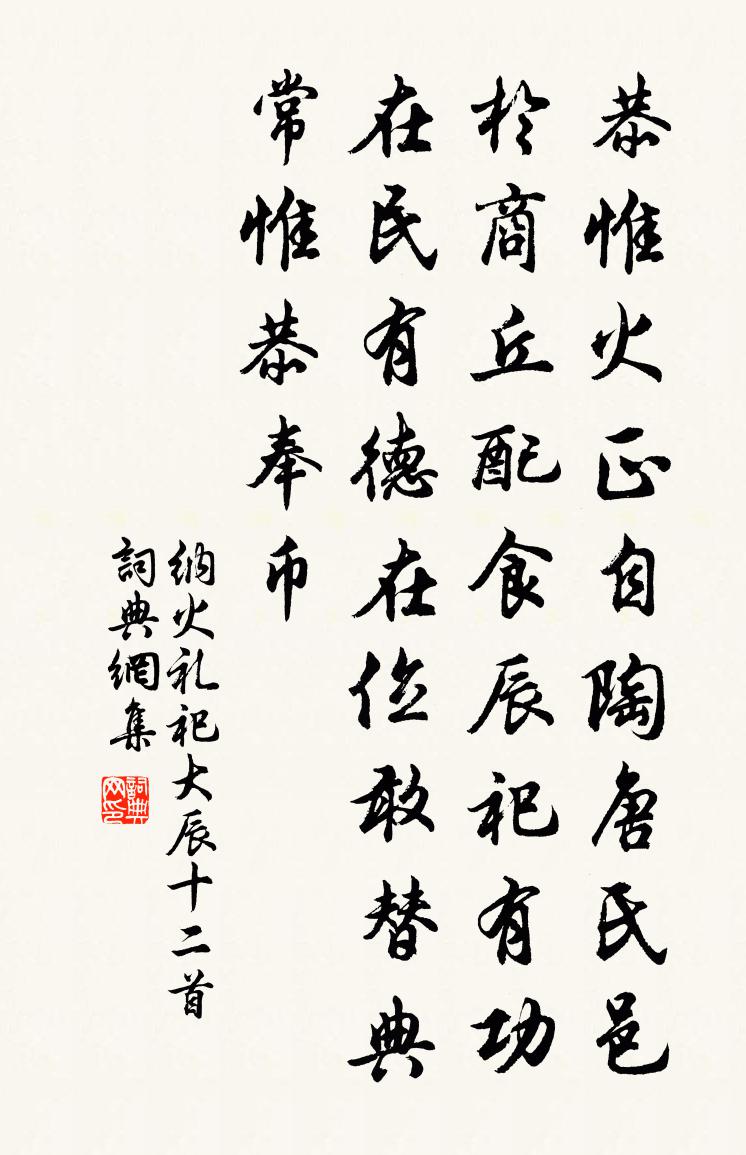 恭惟火正自陶唐氏邑
於商丘配食辰祀有功
在民有德在位敢替典
常惟恭奉币
納火礼祀大辰十二首
詞典網集
詞典網印